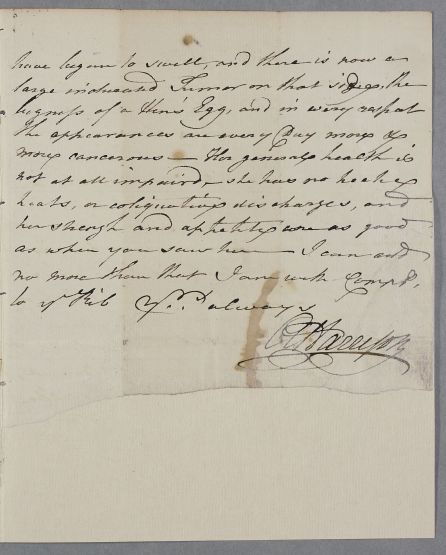 have begun to swell, and there is now a
large indurated Tumor on that side, the
bigness of a Hen's Egg, and in every respect
the appearances are every Day more &
more cancerous — Her general health is
not at all impaired, she has no hectic
heats, or coliquative discharges, and
her strength and appetite are as good
as when you saw her — I can add
no more than that I am with Compts.
to yr Rib Yrs. always
Harrison